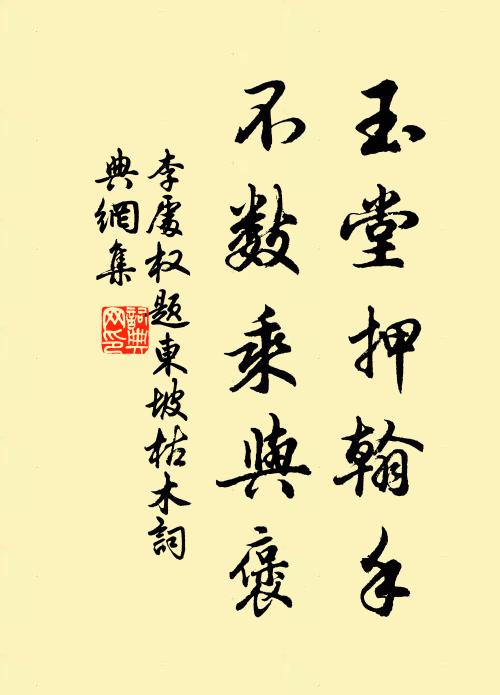 玉堂押翰手
不數乘與褒
李處权題東坡枯木詞
典網集
詞典
网印